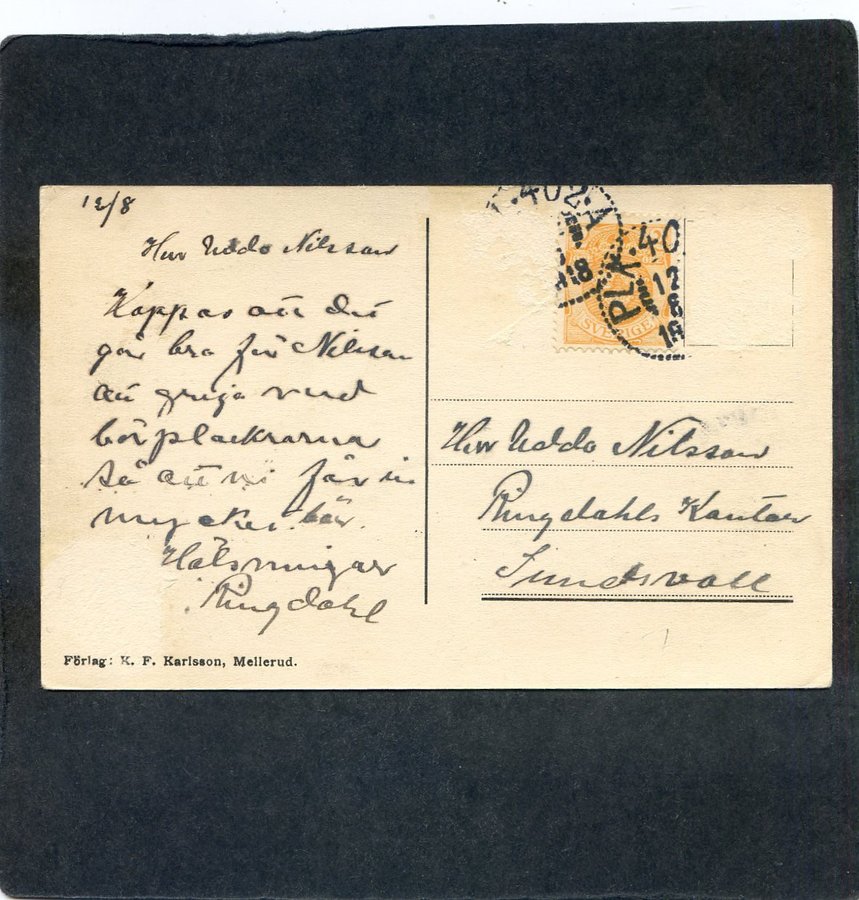 12/8
Herr Uddo Nilsson
Hoppas att det
går bra för Nilsson
att greja med
bärplockrarna
så att vi får in
mycket bär.
Hälsningar
Ringdahl
Förlag: K. F. Karlsson, Mellerud.
402 A
18
PLK. 40
12
8
18
SVERIGE
Herr Uddo Nilsson
Ringdahls Kontor
Sundsvall